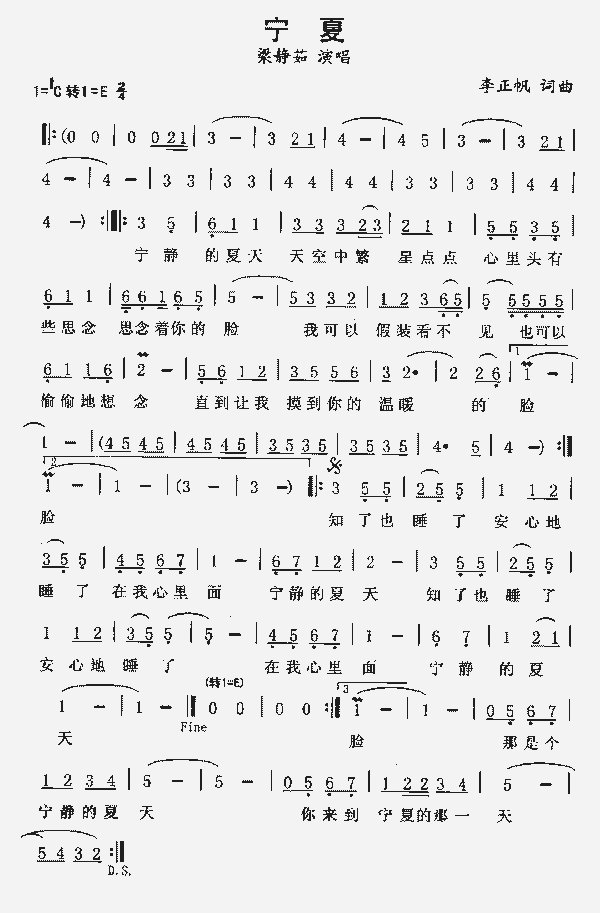 宁 夏
梁静茹 演唱
1=♯C 转1=E 2/4 李正帆 词曲
‖:(0 0 | 0 0 2 1 | 3 - | 3 2 1 | 4 - | 4 5 | 3 - | 3 2 1 |
4 - | 4 - | 3 3 | 3 3 | 4 4 | 4 4 | 3 3 | 3 3 | 4 4 |
4 -) :‖: 3 5 | 6 1 1 | 3 3 3 2 3 | 2 1 1 | 5 5 3 5 |
宁 静 的夏天 天空中繁 星点点 心里头有
6 1 1 | 6 6 1 6 5 | 5 - | 5 3 3 2 | 1 2 3 6 5 | 5 5 5 5 5 |
些思念 思念着你的 脸 我可以 假装看不 见 也可以
6 1 1 6 | 2 - | 5 6 1 2 | 3 5 5 6 | 3 2• | 2 2 6 | 1. 1 - |
偷偷地想 念 直到让我 摸到你的 温暖 的 脸
1 - | (4 5 4 5 | 4 5 4 5 | 3 5 3 5 | 3 5 3 5 | 4• 5 | 4 -) :‖
2.
1 - | 1 - | (3 - | 3 -) ‖: 3 5 5 | 2 5 5 | 1 1 2 |
脸 知了也 睡 了 安心地
3 5 5 | 4 5 6 7 | 1 - | 6 7 1 2 | 2 - | 3 5 5 | 2 5 5 |
睡 了 在我心里 面 宁静的夏 天 知了也 睡 了
1 1 2 | 3 5 5 | 5 - | 4 5 6 7 | 1 - | 6 7 | 1 2 1 |
安 心地 睡 了 在我心里 面 宁 静 的 夏
(转1=E) 3.
1 - | 1 - ‖ 0 0 | 0 0 :‖ 1 - | 1 - | 0 5 6 7 |
Fine
天 脸 那是个
1 2 3 4 | 5 - | 5 - | 0 5 6 7 | 1 2 2 3 4 | 5 - |
宁静的夏 天 你来到 宁夏的那一 天
5 4 3 2 :‖
D.S.